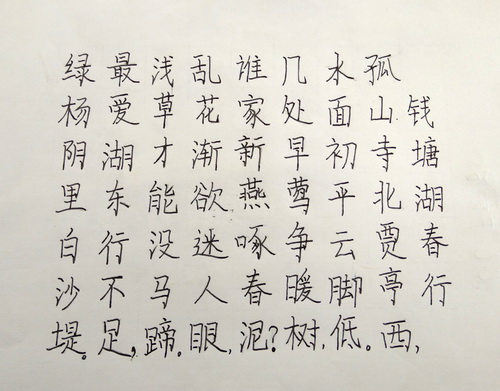 钱塘湖春行
孤山寺北贾亭西,
水面初平云脚低。
几处早莺争暖树,
谁家新燕啄春泥?
乱花渐欲迷人眼,
浅草才能没马蹄。
最爱湖东行不足,
绿杨阴里白沙堤。